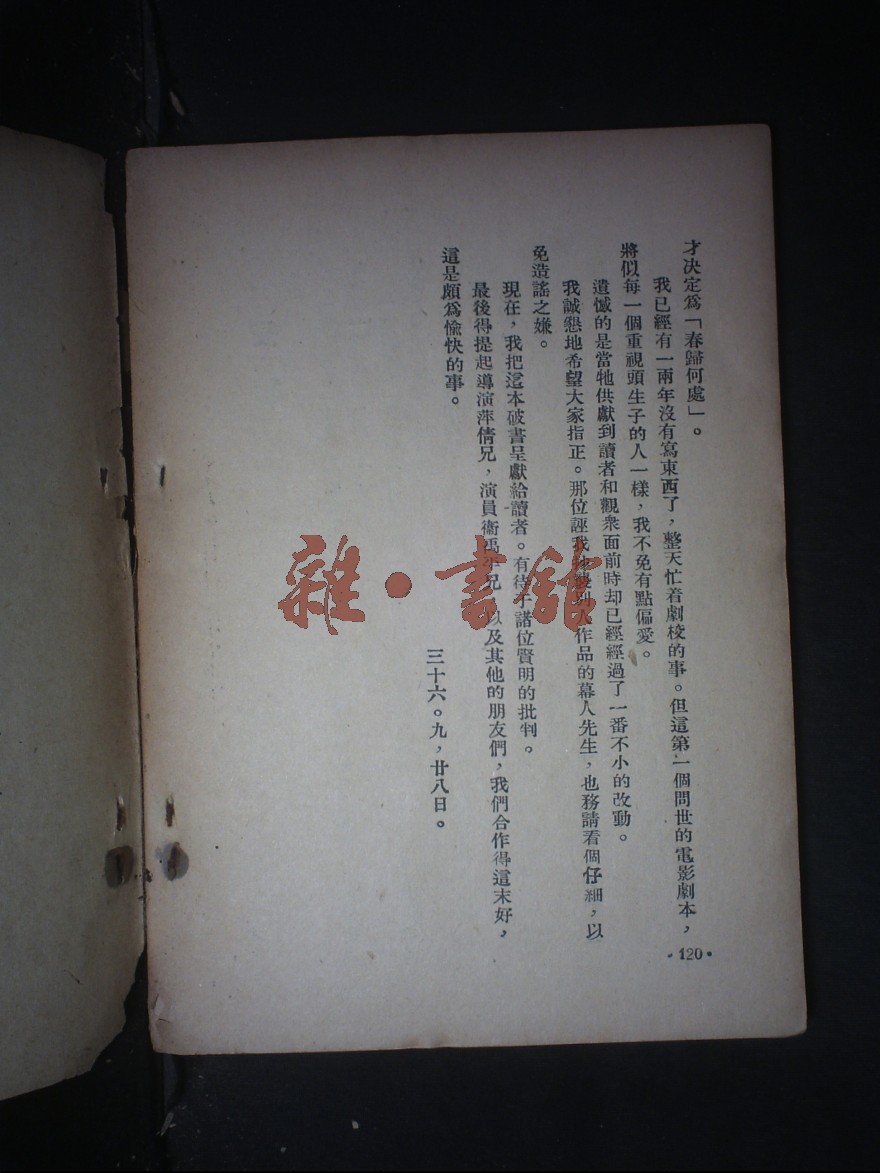 才決定爲「春歸何處」。
我已經有一兩年沒有寫東西了，整天忙着劇校的事。但這第一個問世的電影劇本，
將似每一個重視頭生子的人一樣，我不免有點偏愛。
遺憾的是當牠供獻到讀者和觀衆面前時却已經經過了一番不小的改動。
我誠懇地希望大家指正。那位誣我 別人作品的幕人先生，也務請看個仔細，以
免造謠之嫌。
現在，我把這本破書呈獻給讀者。有待于諸位賢明的批判。
最後得提起導演萍倩兄，演員衞禹平兄，以及其他的朋友們，我們合作得這末好，
這是頗爲愉快的事。
三十六。九，廿八日。
·120·
雜·書館